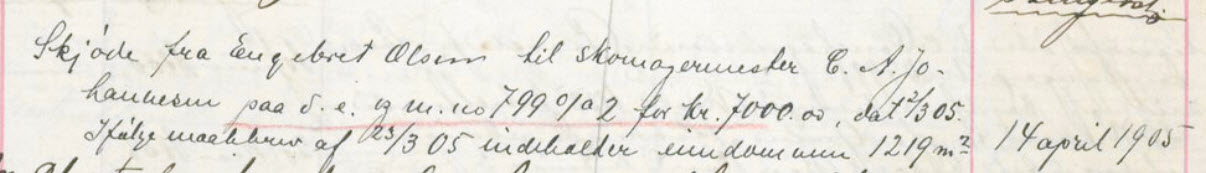 Skjøde fra Engebret Olsen til skomagermester C. A. Jo-
hannesen paa d. e. og m. no 799 o/a 2 for kr. 7000.00, dat 2/3 05.
Ifølge maalebrev af 23/3 05 indeholder eiendommen 1219 m² 14 april 1905